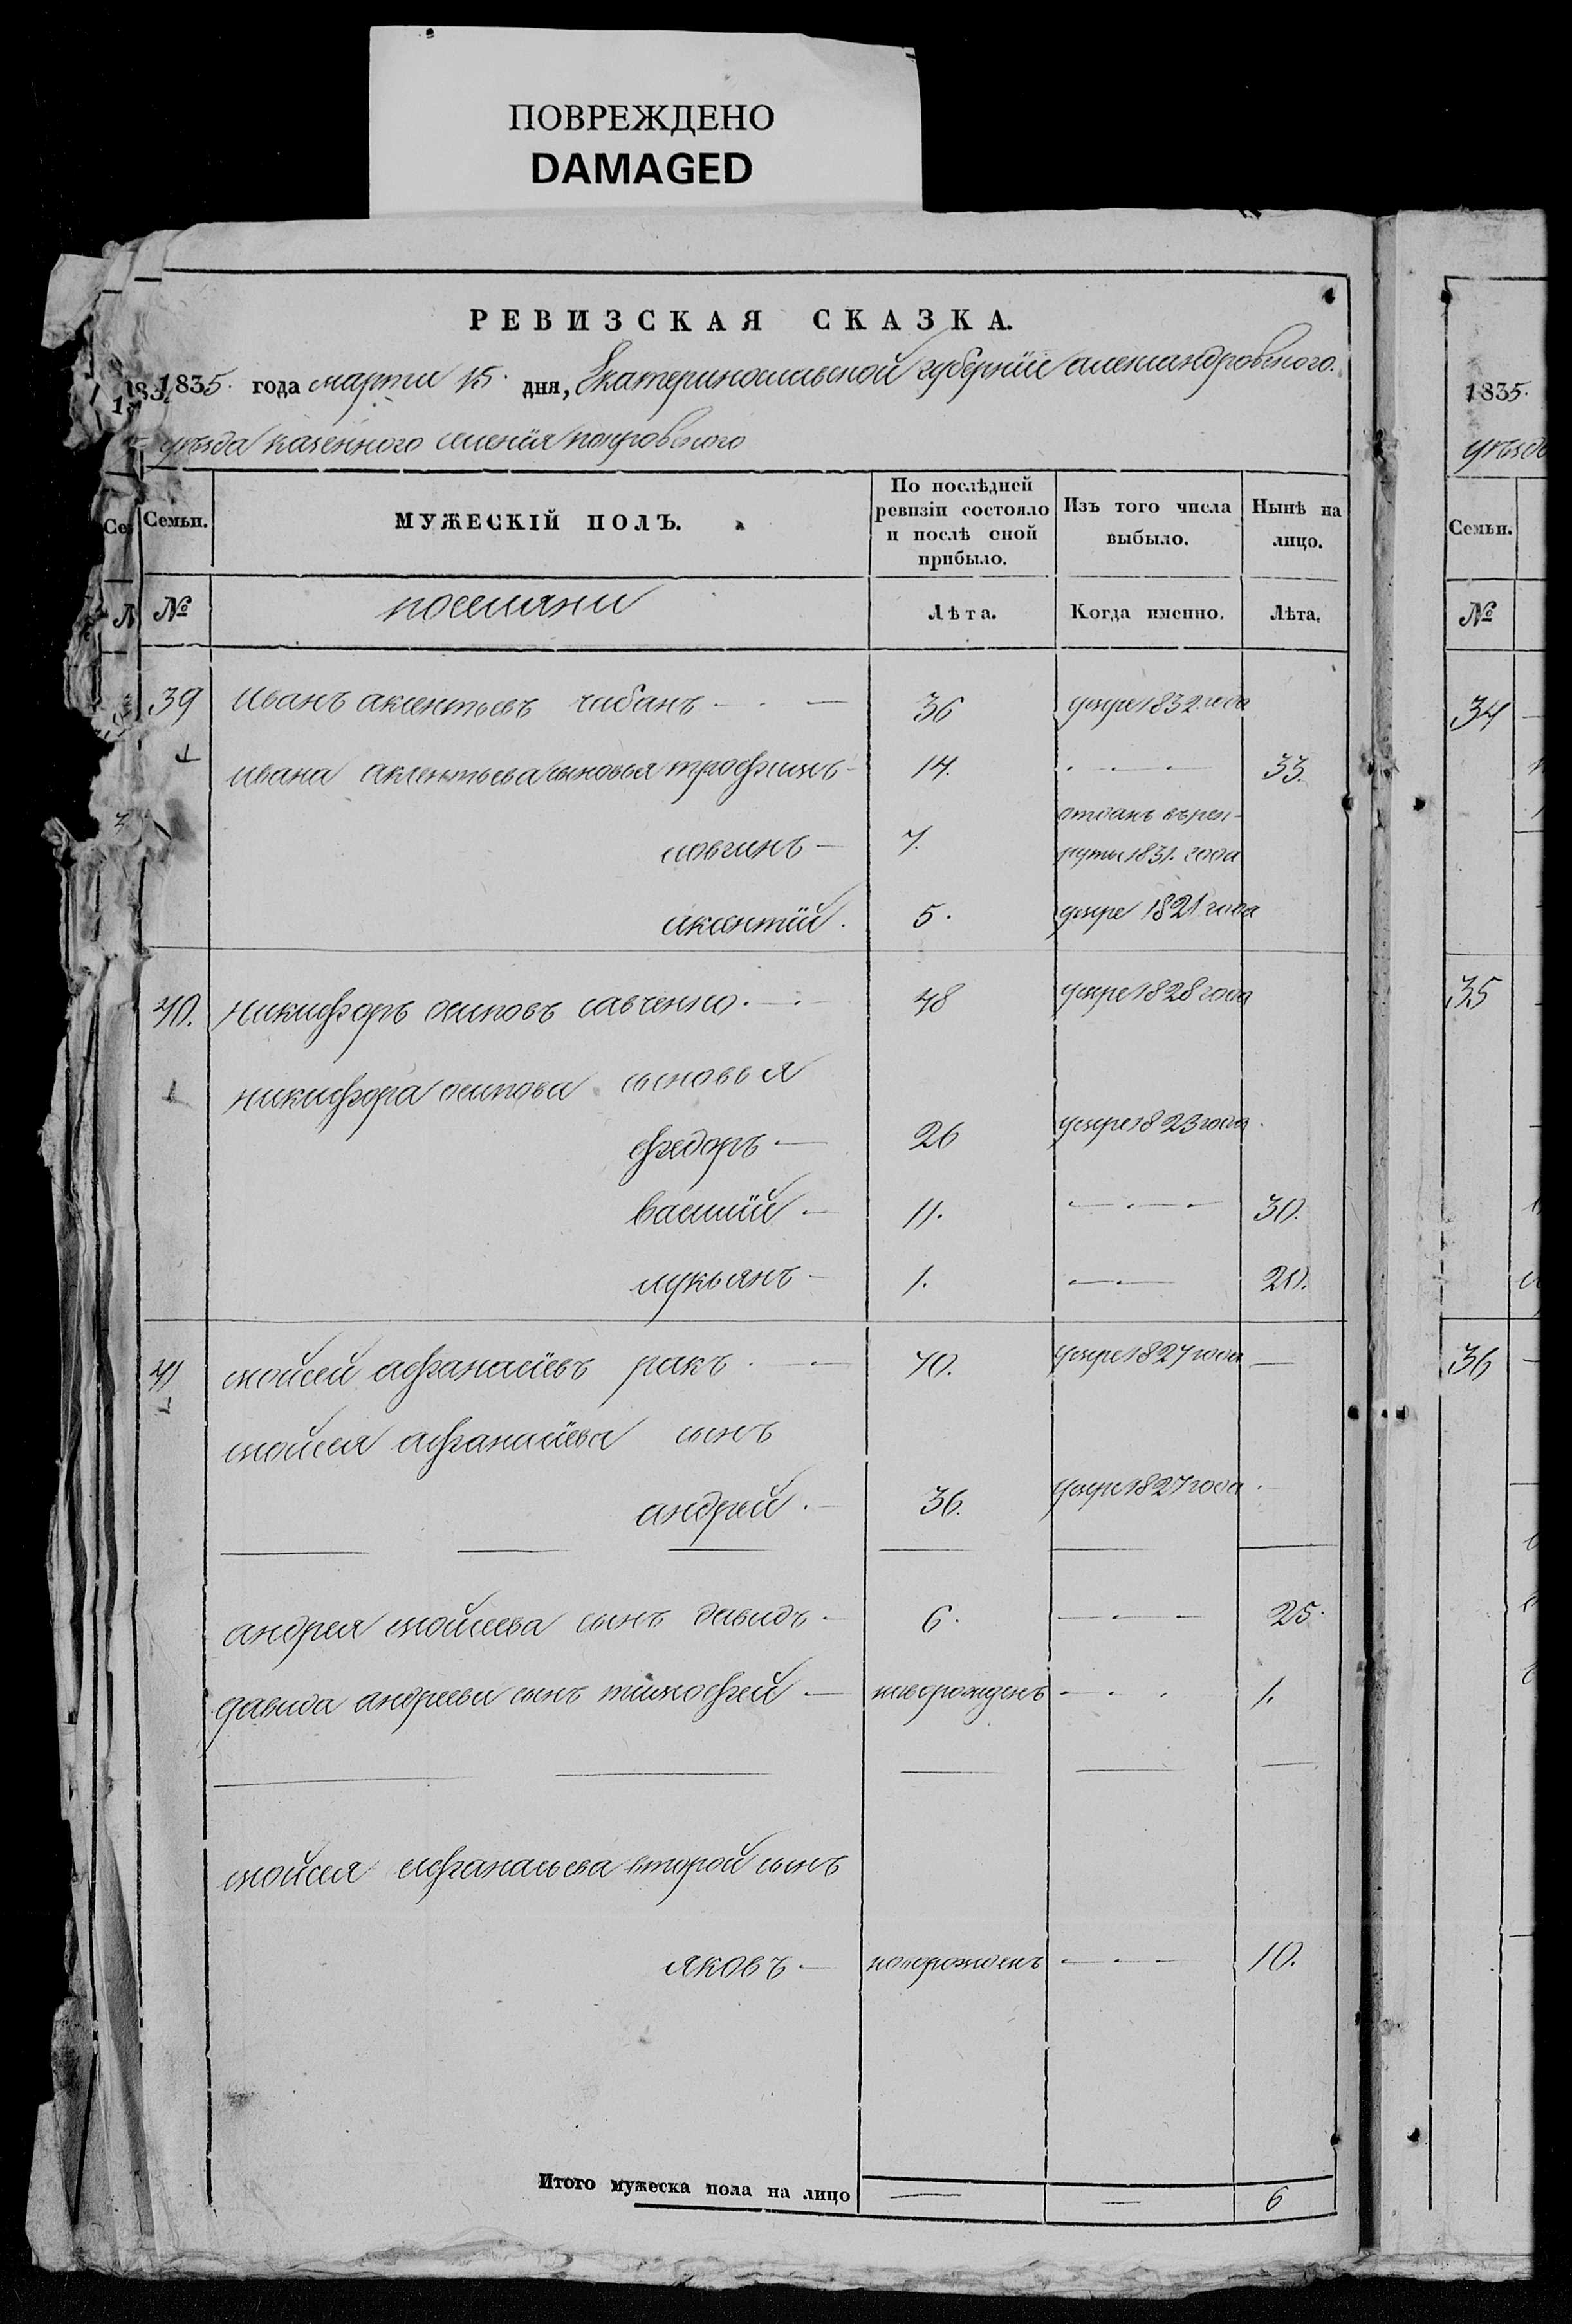 ПОВРЕЖДЕНО
DAMAGED
РЕВИЗСКАЯ СКАЗКА.
1835. года марта 15. дня, Екатеринославской губерніи александровского.
уезда казенного селенія покровского
Семьи. МУЖЕСКІЙ ПОЛЪ. По послѣдней ревизіи состояло и послѣ оной прибыло. Изъ того числа выбыло. Нынѣ на лицо.
№ поселяни Лѣта. Когда именно. Лѣта.
39 Иванъ аксентьевъ чабанъ — 36 умре 1832 года
ивана аксентьева сыновья трофимъ — 14. — 33.
логинъ — 7. отданъ върек-
руты 1831. года
аксентій. 5. умре 1821 года
40. никифоръ осиповъ савченко. — 48 умре 1828 года
никифора осипова сыновья
федоръ — 26 умре 1823 года.
василій — 11. — 30.
лукьянъ — 1. — 20.
41 мойсей афанасіевъ ракъ. — 40. умре 1827 года —
мойсея афанасіева сынъ
андрей. — 36. умре 1827 года.
андрея мойсеева сынъ давидъ — 6. — 25.
давида андреева сынъ тимофей — новорожденъ — 1.
мойсея афанасьева второй сынъ
яковъ — новорожденъ — 10.
Итого мужеска пола на лицо — — 6
1835.
уезда
Семьи.
№
34
35
36